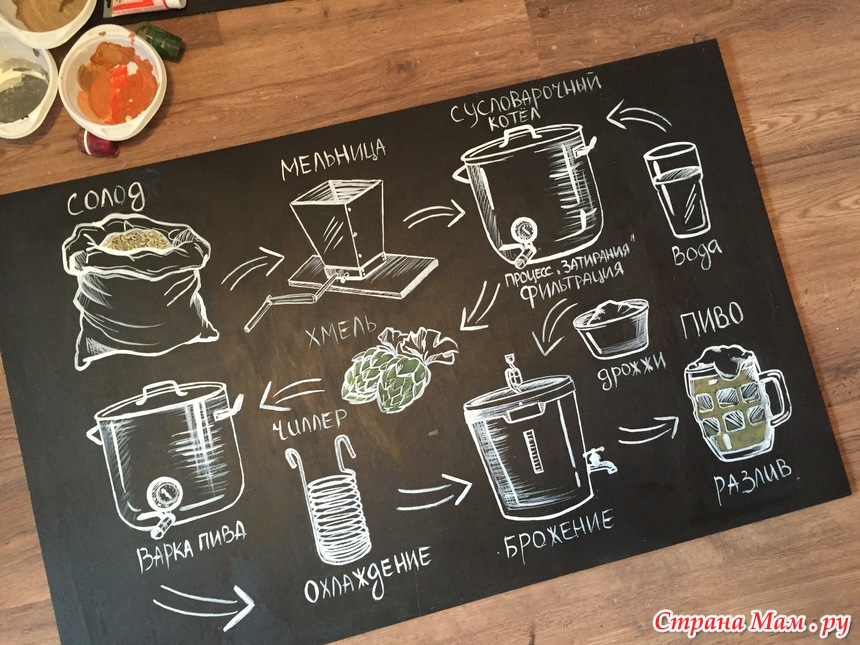 СОЛОД
МЕЛЬНИЦА
СУСЛОВАРОЧНЫЙ
КОТЁЛ
ВОДА
ПРОЦЕСС „ЗАТИРАНИЯ"
ФИЛЬТРАЦИЯ
ХМЕЛЬ
ДРОЖЖИ
ПИВО
ЧИЛЛЕР
ВАРКА ПИВА
ОХЛАЖДЕНИЕ
БРОЖЕНИЕ
РАЗЛИВ
Страна Мам.ру